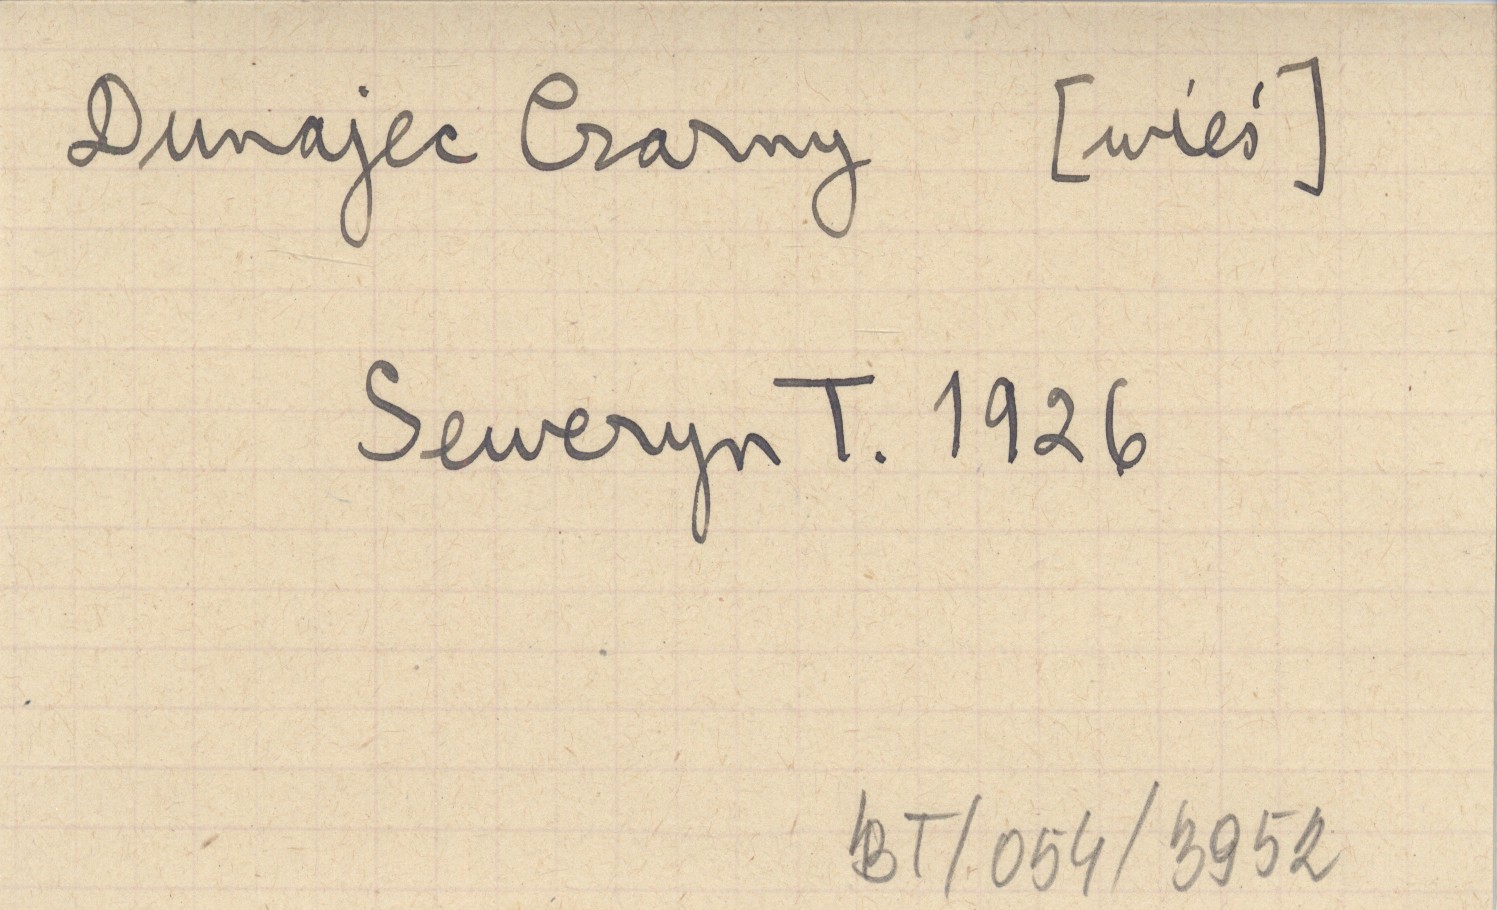 Dunajec Czarny [wieś]
Seweryn T. 1926
BT/054/3952